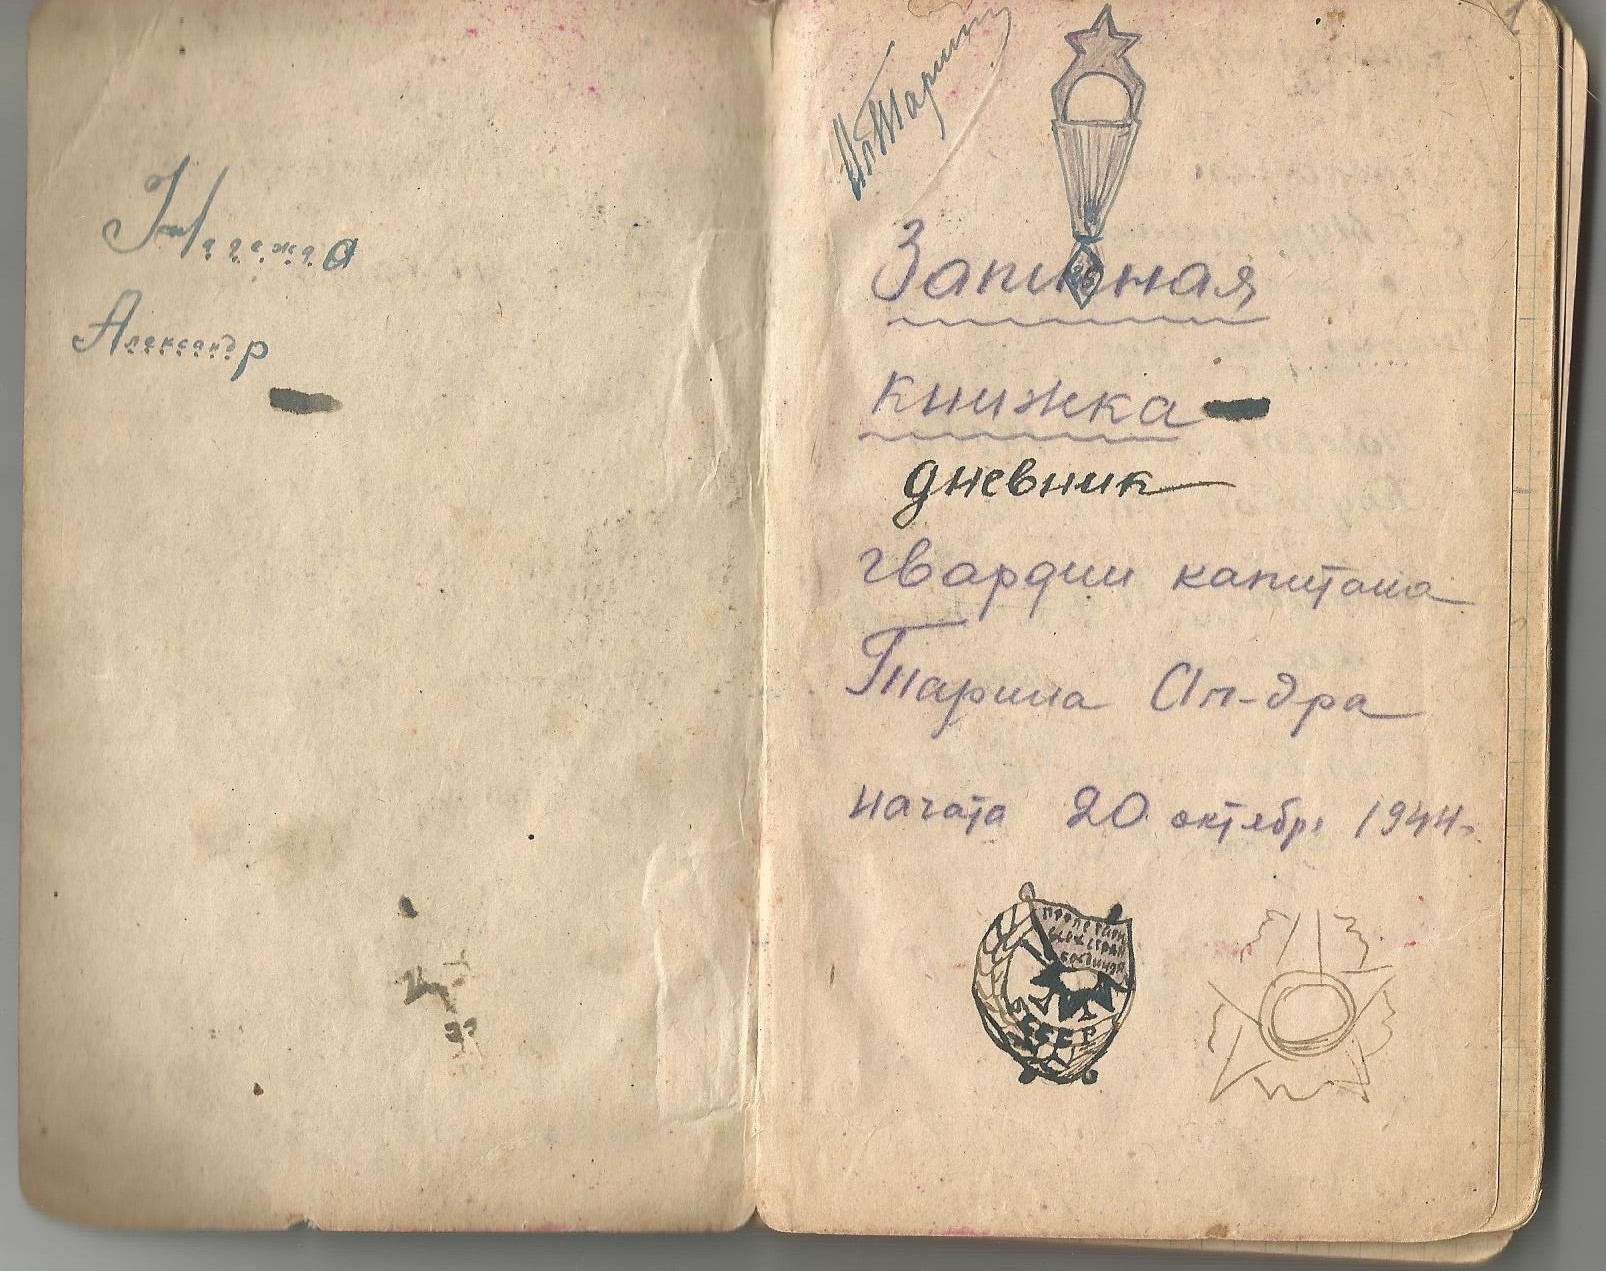 Надежда
Александр
Ал Тарин
Записная
книжка
дневник
гвардии капитана
Тарина Ал-дра
начата 20 октября 1944 г.
ПРОЛЕТАРИ
ВСЕХ СТРАН
СОЕДИНЯЙ
СССР